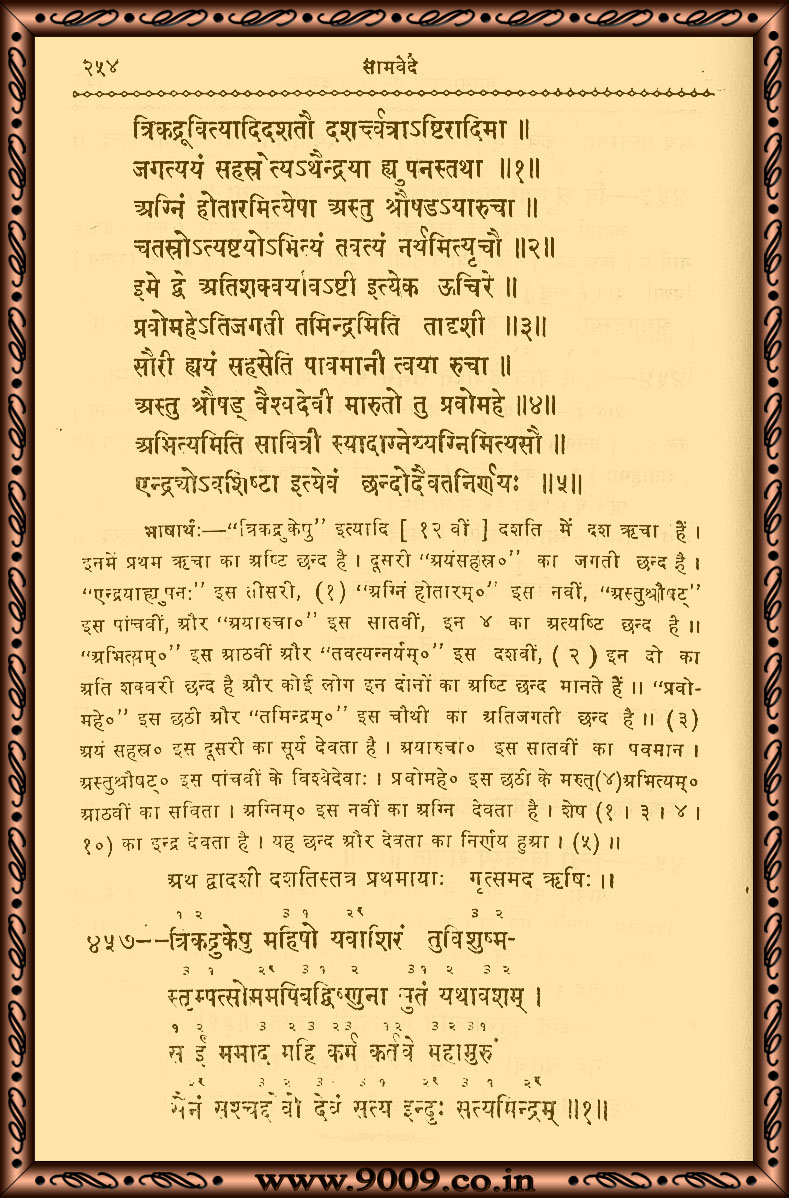 २५४ सामवेदे
त्रिकद्रूवित्यादिदशतौ दशर्च्वत्राऽष्टिरादिमा ॥
जगत्ययं सहस्रेत्यऽथैन्द्रया ह्युपनस्तथा ॥१॥
अग्निं होतारमित्येषा अस्तु श्रौषडऽयारुचा ॥
चतस्रोऽत्यष्टयोऽभित्यं तवत्यं नर्यमित्यृचौ ॥२॥
इमे द्वे अतिशक्वर्यावऽष्टी इत्येक ऊचिरे ॥
प्रवोमहेऽतिजगती तमिन्द्रमिति तादृशी ॥३॥
सौरी ह्ययं सहस्रेति पावमानी त्वया रुचा ॥
अस्तु श्रौषड् वैश्वदेवी मारुती तु प्रवोमहे ॥४॥
अभित्यमिति सावित्री स्यादाग्नेय्यग्निमित्यसौ ॥
एन्द्र्योऽवशिष्टा इत्येवं छन्दोदैवतनिर्णयः ॥५॥
भाषार्थः—“त्रिकद्रुकेषु” इत्यादि [ १२ वीं ] दशति में दश ऋचा हैं ।
इनमें प्रथम ऋचा का अष्टि छन्द है । दूसरी “अयंसहस्र०” का जगती छन्द है ।
“एन्द्रयाह्युपनः” इस तीसरी, (१) “अग्निं होतारम्०” इस नवीं, “अस्तुश्रौषट्”
इस पांचवीं, और “अयारुचा०” इस सातवीं, इन ४ का अत्यष्टि छन्द है ॥
“अभित्यम्०” इस आठवीं और “तवत्यन्नर्यम्०” इस दशवीं, ( २ ) इन दो का
अति शक्वरी छन्द है और कोई लोग इन दोनों का अष्टि छन्द मानते हैं ॥ “प्रवो-
महे०” इस छठी और “तमिन्द्रम्०” इस चौथी का अतिजगती छन्द है ॥ (३)
अयं सहस्र० इस दूसरी का सूर्य देवता है । अयारुचा० इस सातवीं का पवमान ।
अस्तुश्रौषट्० इस पांचवीं के विश्वेदेवाः । प्रवोमहे० इस छठी के मरुत्(४)अभित्यम्०
आठवीं का सविता । अग्निम्० इस नवीं का अग्नि देवता है । शेष (१ । ३ । ४ ।
१०) का इन्द्र देवता है । यह छन्द और देवता का निर्णय हुआ । (५) ॥
अथ द्वादशी दशतिस्तत्र प्रथमायाः गृत्समद ऋषिः ॥
१ २ ३ १ २र ३ २
४५७--त्रिकद्रुकेषु महिषो यवाशिरं तुविशुष्म-
३ १ २र ३ १ २ ३१ २ ३ २
स्तृम्पत्सोममपिबद्विष्णुना सुतं यथावशम् ।
१ २ ३ २ ३ २३ १२ ३ २ ३१
स ईं ममाद महि कर्म कर्तवे महामुरुं
२र ३ २ ३ ३ १ २र ३ १ २र
सैनं सश्चद्देवो देवं सत्य इन्दुः सत्यमिन्द्रम् ॥१॥
www.9009.co.in